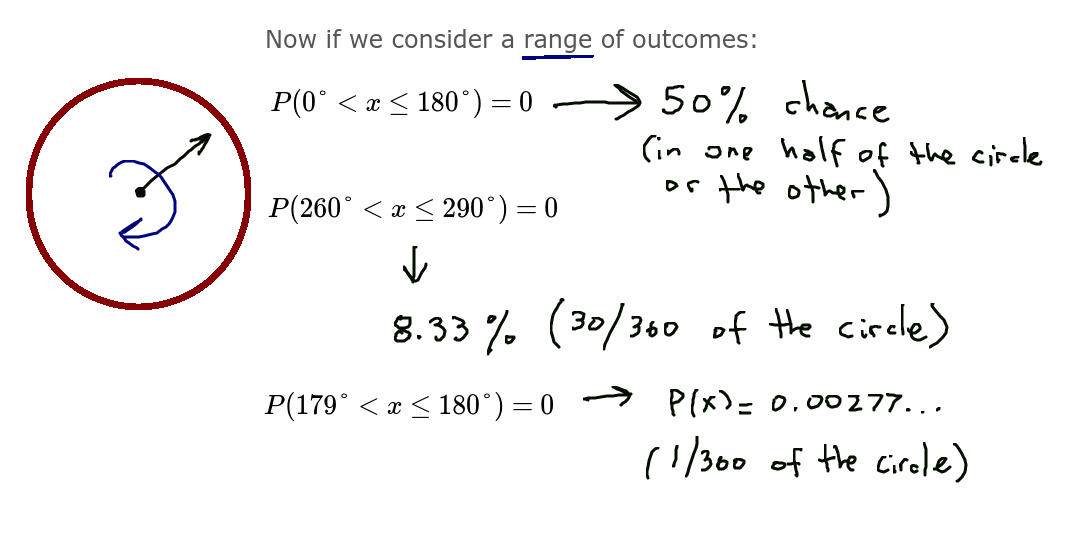 Now if we consider a range of outcomes:
P(0° < x ≤ 180°) = 0 → 50% chance
(in one half of the circle
or the other)
P(260° < x ≤ 290°) = 0
↓
8.33% (30/360 of the circle)
P(179° < x ≤ 180°) = 0 → P(x) = 0.00277...
(1/360 of the circle)